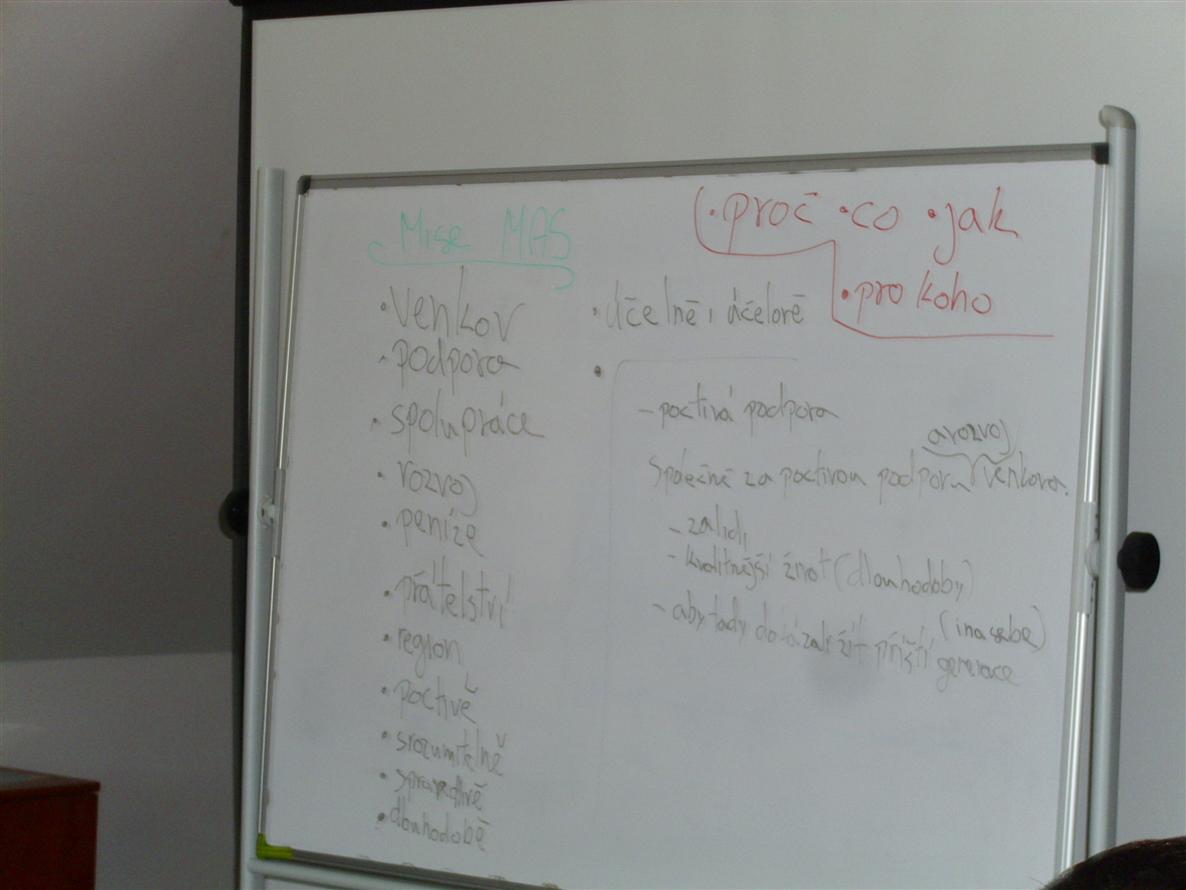 Mise MAS
• venkov
• podpora
• spolupráce
• rozvoj
• peníze
• přátelství
• region
• poctivě
• srozumitelně
• spravedlivě
• dlouhodobě
• proč • co • jak
• pro koho
• účelně i účelově
•
- poctivá podpora
a rozvoj
Společně za poctivou podporu venkova.
- za lidi
- kvalitnější život (dlouhodoby)
- aby tady dokázali žít příští generace
(i na sebe)